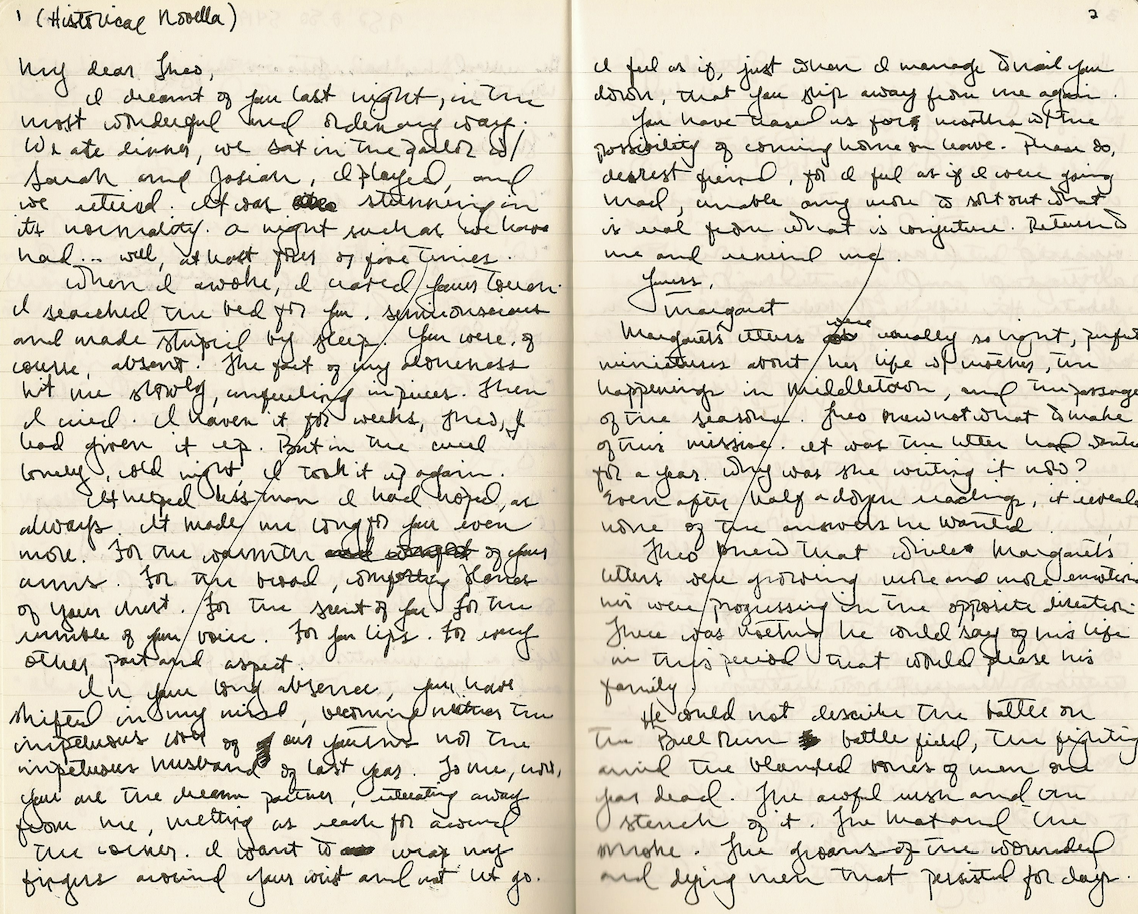 1 (Historical Novella)
My dear Theo,
I dreamt of you last night, in the
most wonderful and ordinary way.
We ate dinner, we sat in the parlor w/
Sarah and Josiah, I played, and
we retired. It was stunning in
its normality. A night such as we have
had... well, at least four or five times.
When I awoke, I craved your touch.
I searched the bed for you, semiconscious
and made stupid by sleep. You were, of
course, absent. The fact of my aloneness
hit me slowly, in pieces. Then
I cried. I haven't for weeks, Theo, I
had given it up. But in the cruel
lonely, cold night, I took it up again.
It helped less than I had hoped, as
always. It made me long for you even
more. For the warmth of your
arms. For the broad, comforting planes
of your chest. For the scent of you. For the
rumble of your voice. For your lips. For every
other part and aspect.
In your long absence, you have
shifted in my mind, becoming neither the
impetuous of our youths nor the
impetuous husband of last year. To me, now,
you are the dream partner, away
from me, melting as I reach for around
the corner. I want to wrap my
fingers around your wrist and not let go.
2
I feel as if, just when I manage to nail you
down, that you slip away from me again.
You have teased us for months w/ the
possibility of coming home on leave. Please do,
dearest friend, for I feel as if I were going
mad, unable any more to sort out what
is real from what is conjecture. Return to
me and remind me.
Yours,
Margaret
Margaret's letters were usually so light, perfect
miniatures about her life w/ mother, the
happenings in Middletown, and the passage
of the seasons. Theo knew not what to make
of this missive. It was the letter he'd wanted
for a year. Why was she writing it now?
Even after half a dozen readings, it revealed
none of the answers he wanted
Theo knew that while Margaret's
letters were growing more and more emotional
his were progressing in the opposite direction.
There was nothing he could say of his life
in this period that would please his
family.
He could not describe the battle on
the Bull Run battle field, the fighting
amid the blanched bones of men one
year dead. The awful rush and the
stench of it. The heat and the
smoke. The groans of the wounded
and dying men that persisted for days.